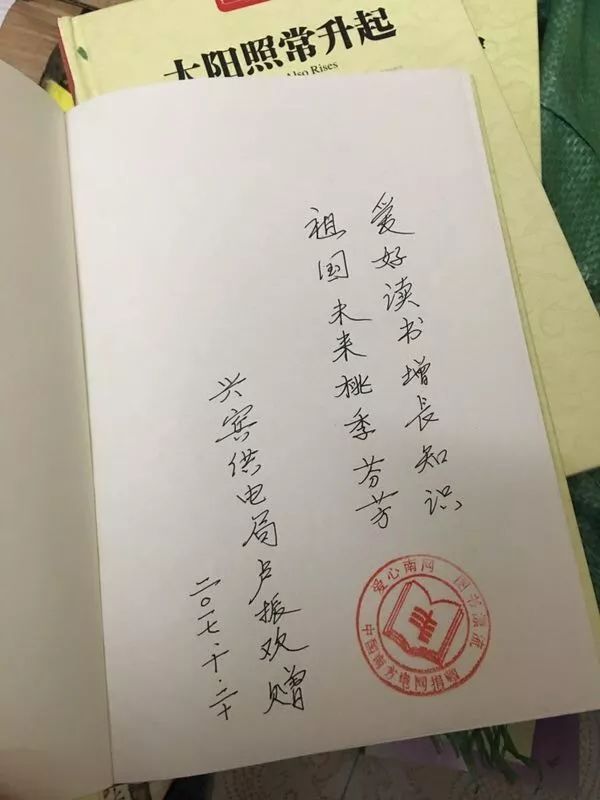 太阳照常升起
Also Rises
爱好读书增长知识
祖国未来桃季芬芳
兴宾供电局卢振欢赠
二〇一七.十.二十
爱心南网 图书漂流
中国南方电网捐赠